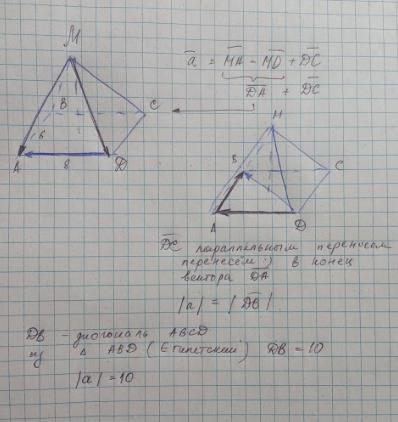 M
a = MA - MD + DC
DA + DC
B
C
6
A
8
D
M
B
C
A
D
DC параллельным переносом
перенесём :) в конец
вектора DA
|a| = |DB|
DB - диогональ ABCD
из Δ ABD (Египетский) DB = 10
|a| = 10